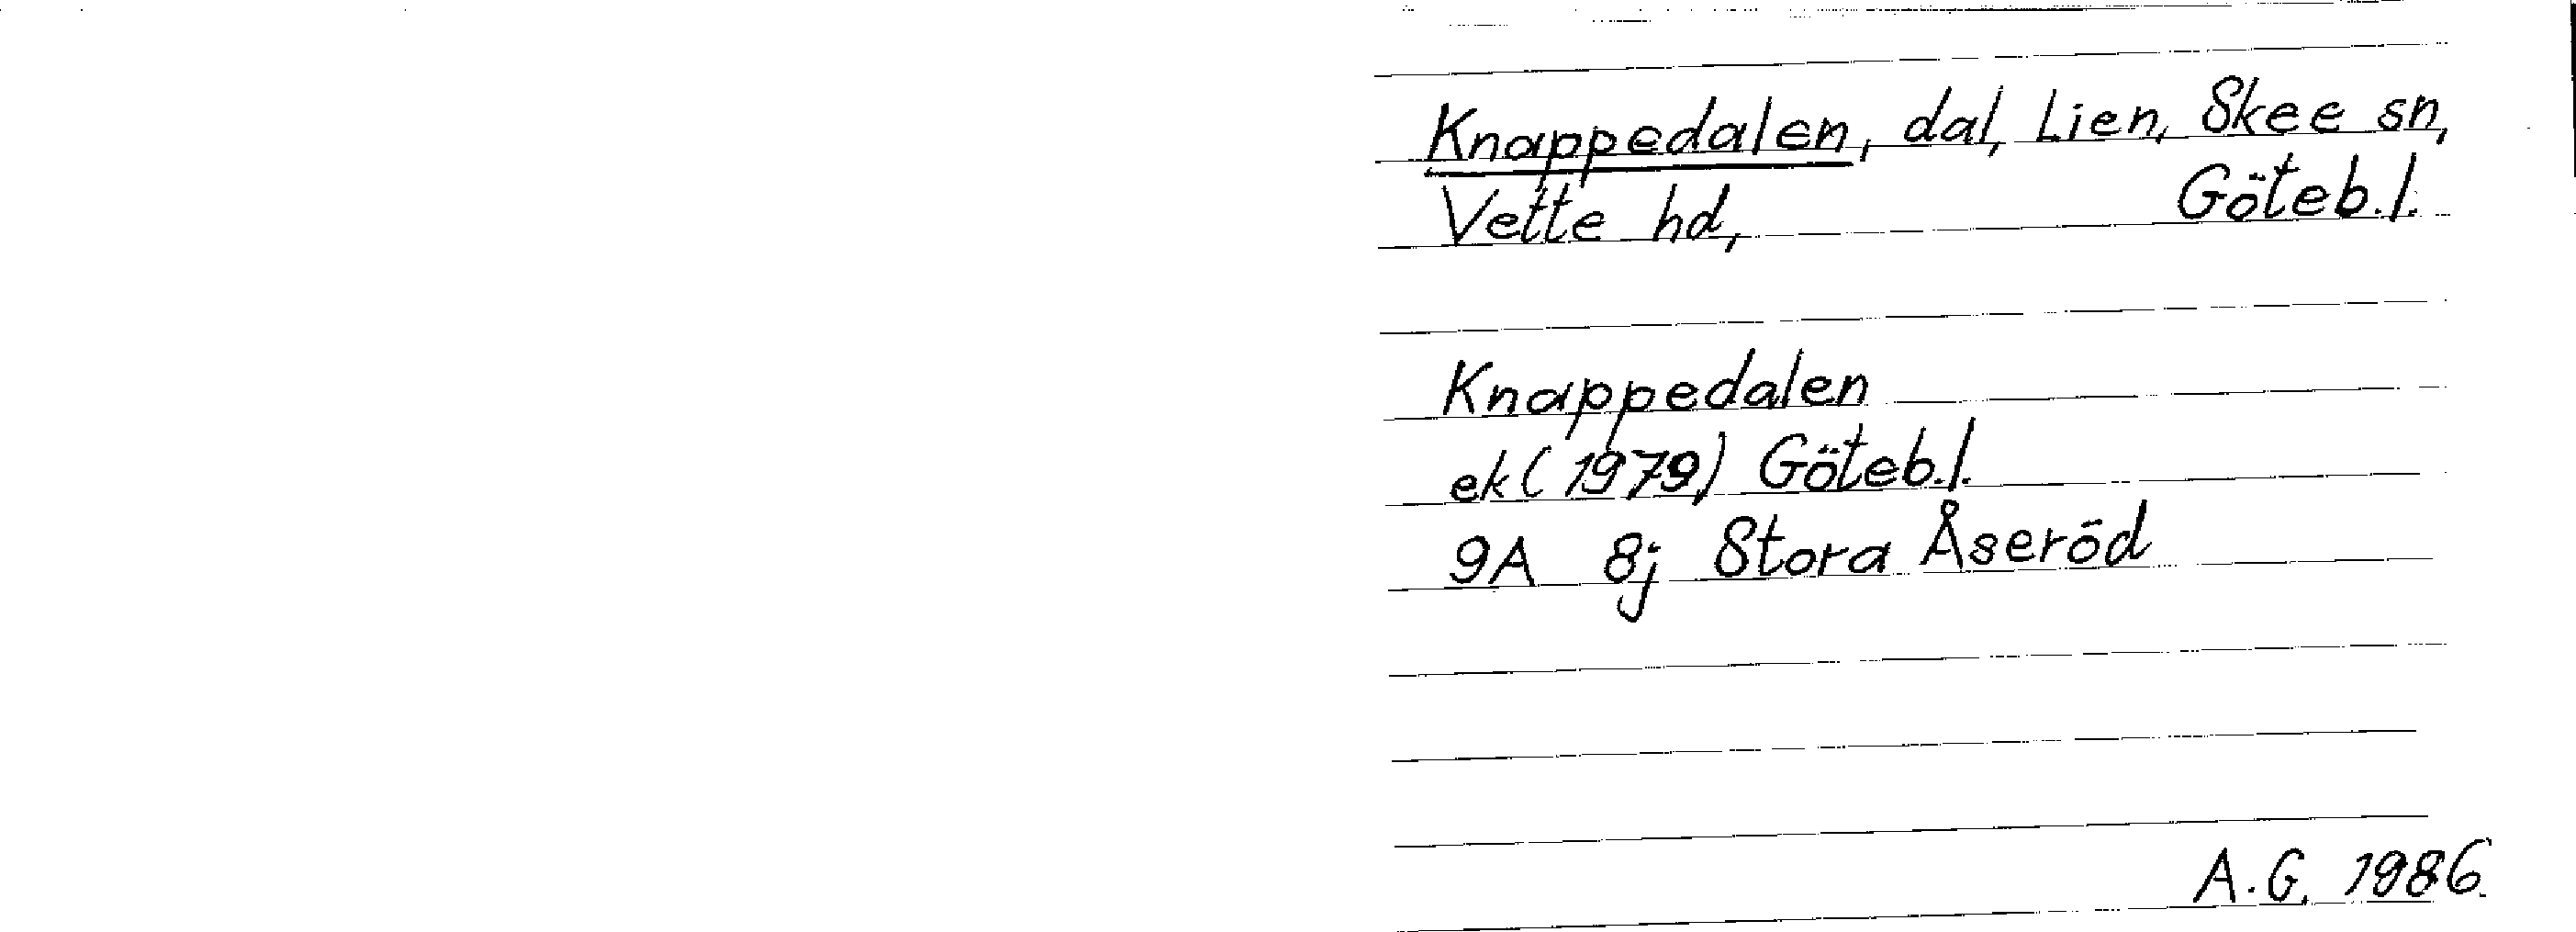 Knappedalen, dal, Lien, Skee sn,
Vette hd, Göteb.l.
Knappedalen
ek (1979) Göteb.l.
9A 8j Stora Åseröd
A.G. 1986